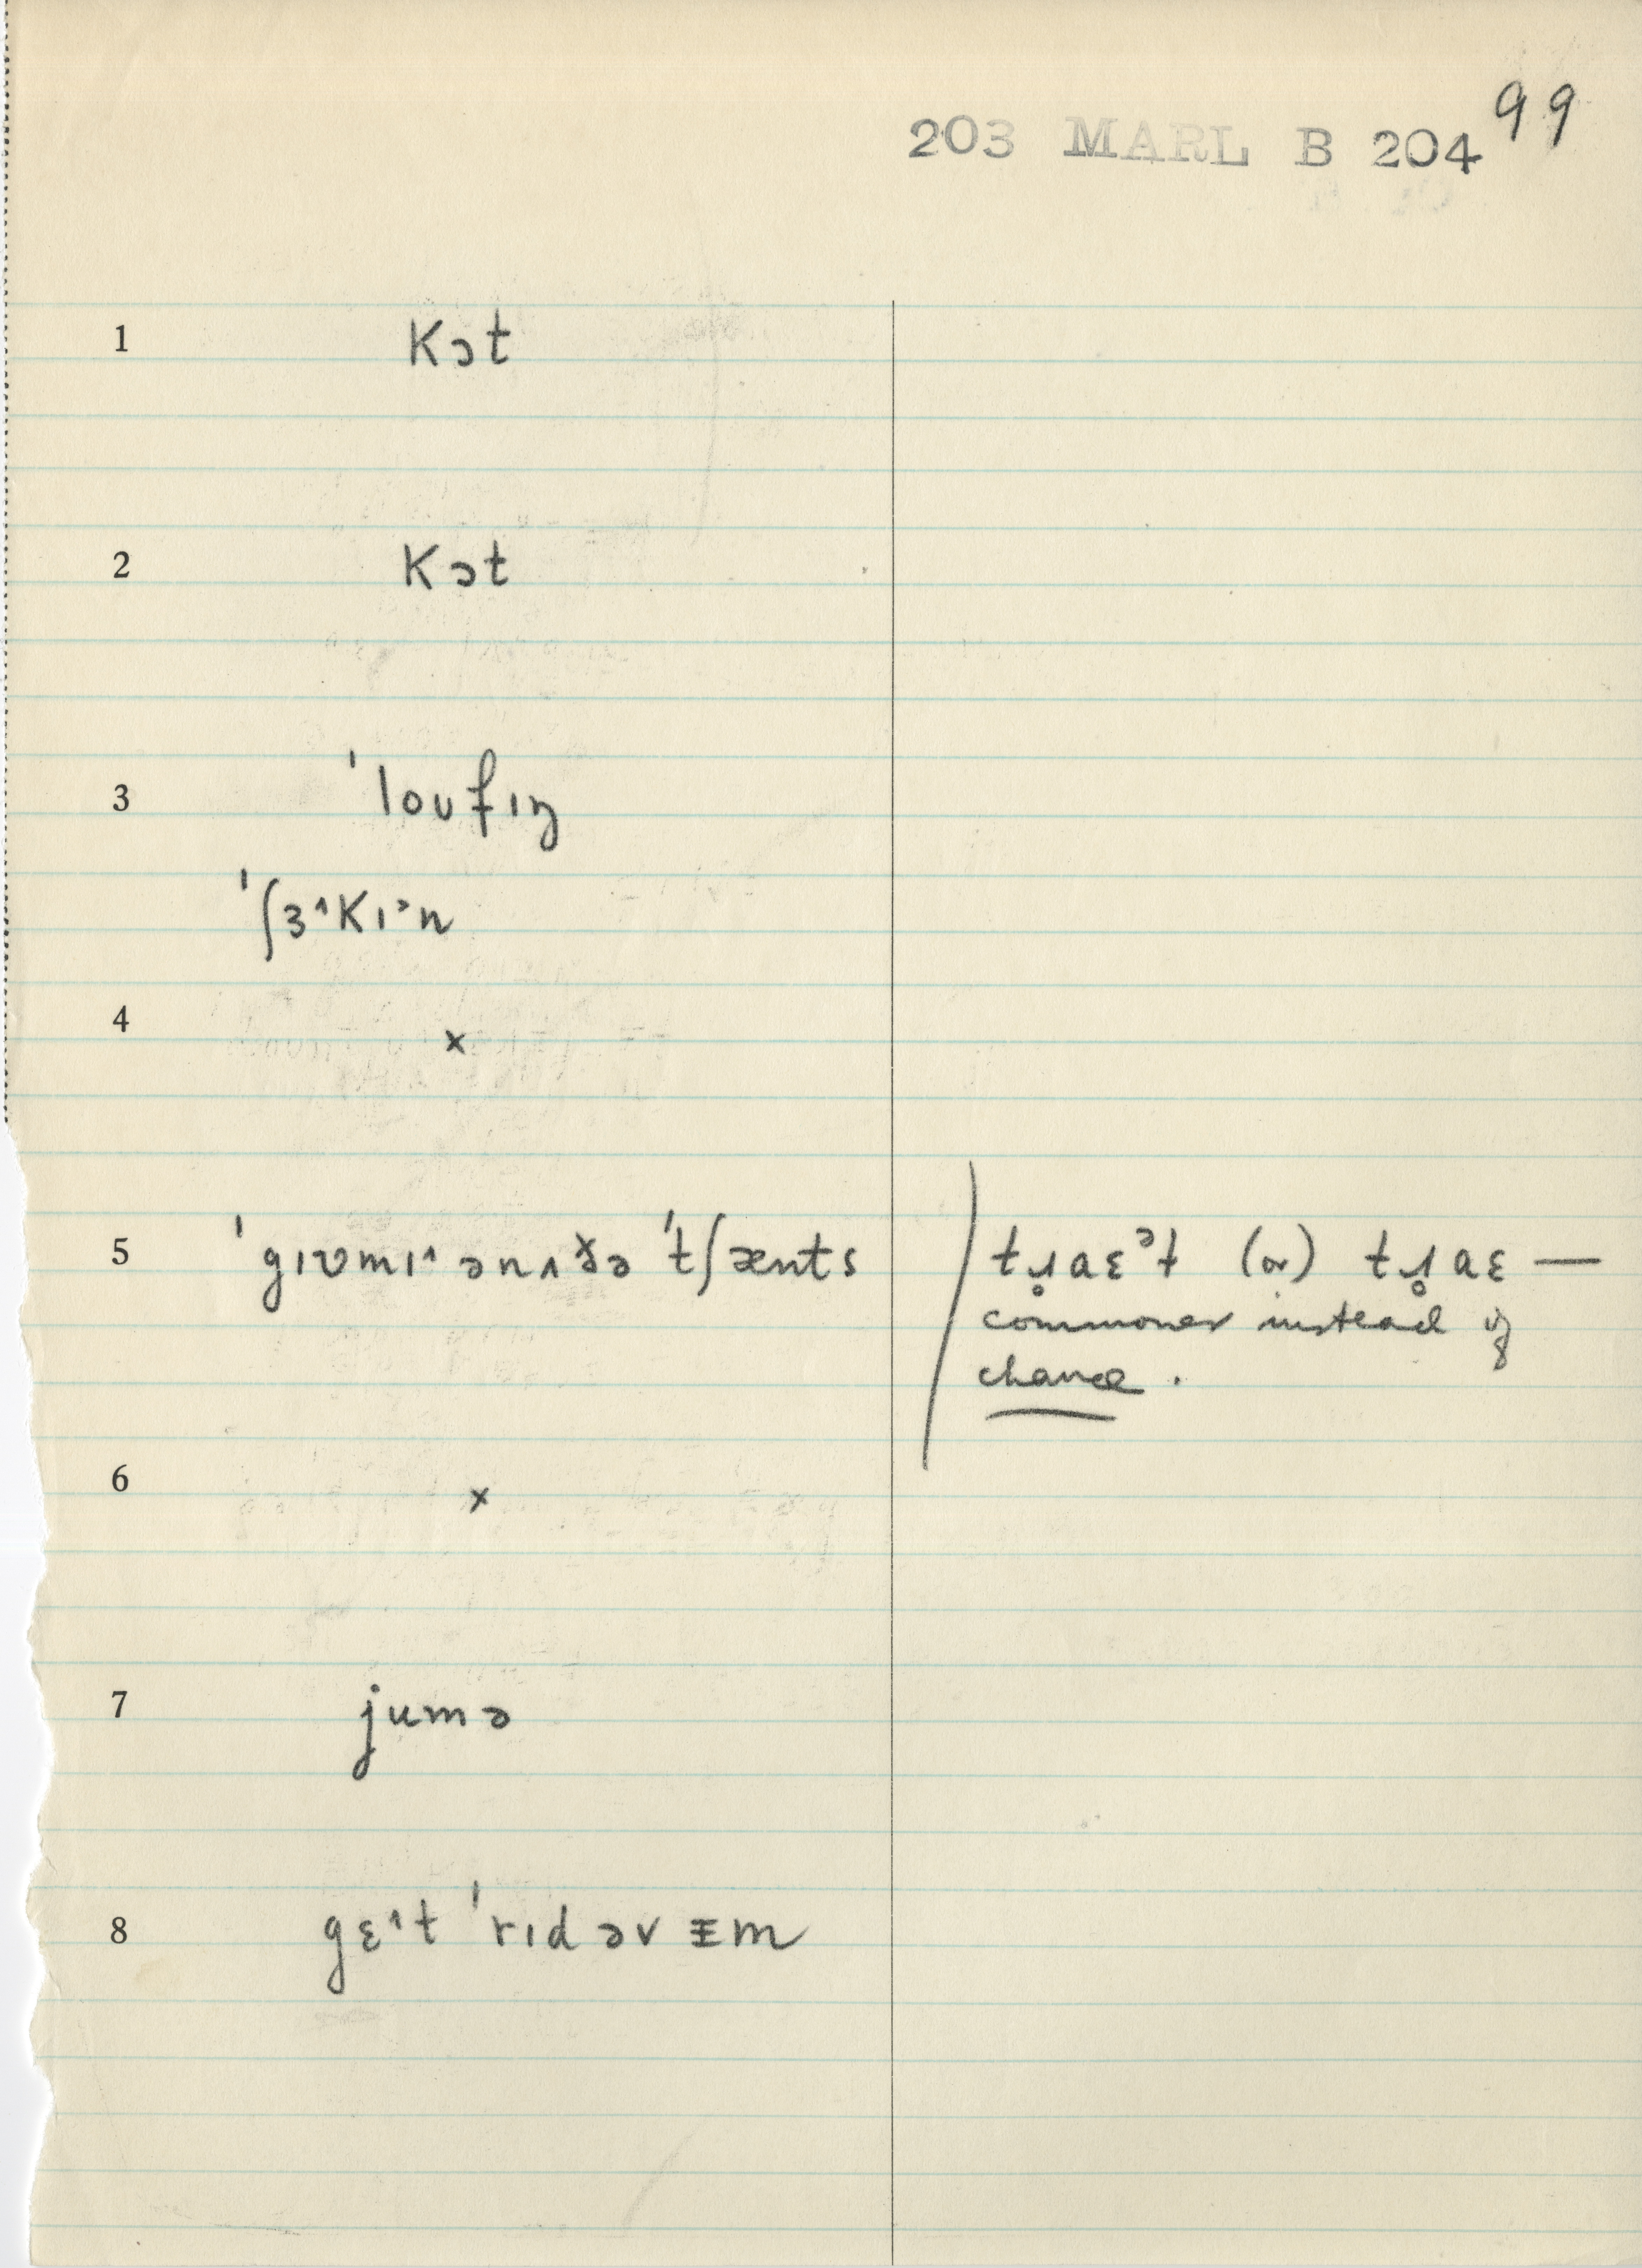 99
203 MARL B 204
1 kɔt
2 kɔt
3 ˈloʊfɪŋ
ˈʃɜ˄kɪ˃n
4 x
5 ˈgɪvmɪ˄ ənʌðə ˈtʃænts
tɹ̥aɛ˃t (or) tɹ̥aɛ —
commoner instead of
chance.
6 x
7 jumə
8 gɛ˄t ˈrɪd əv ɪm